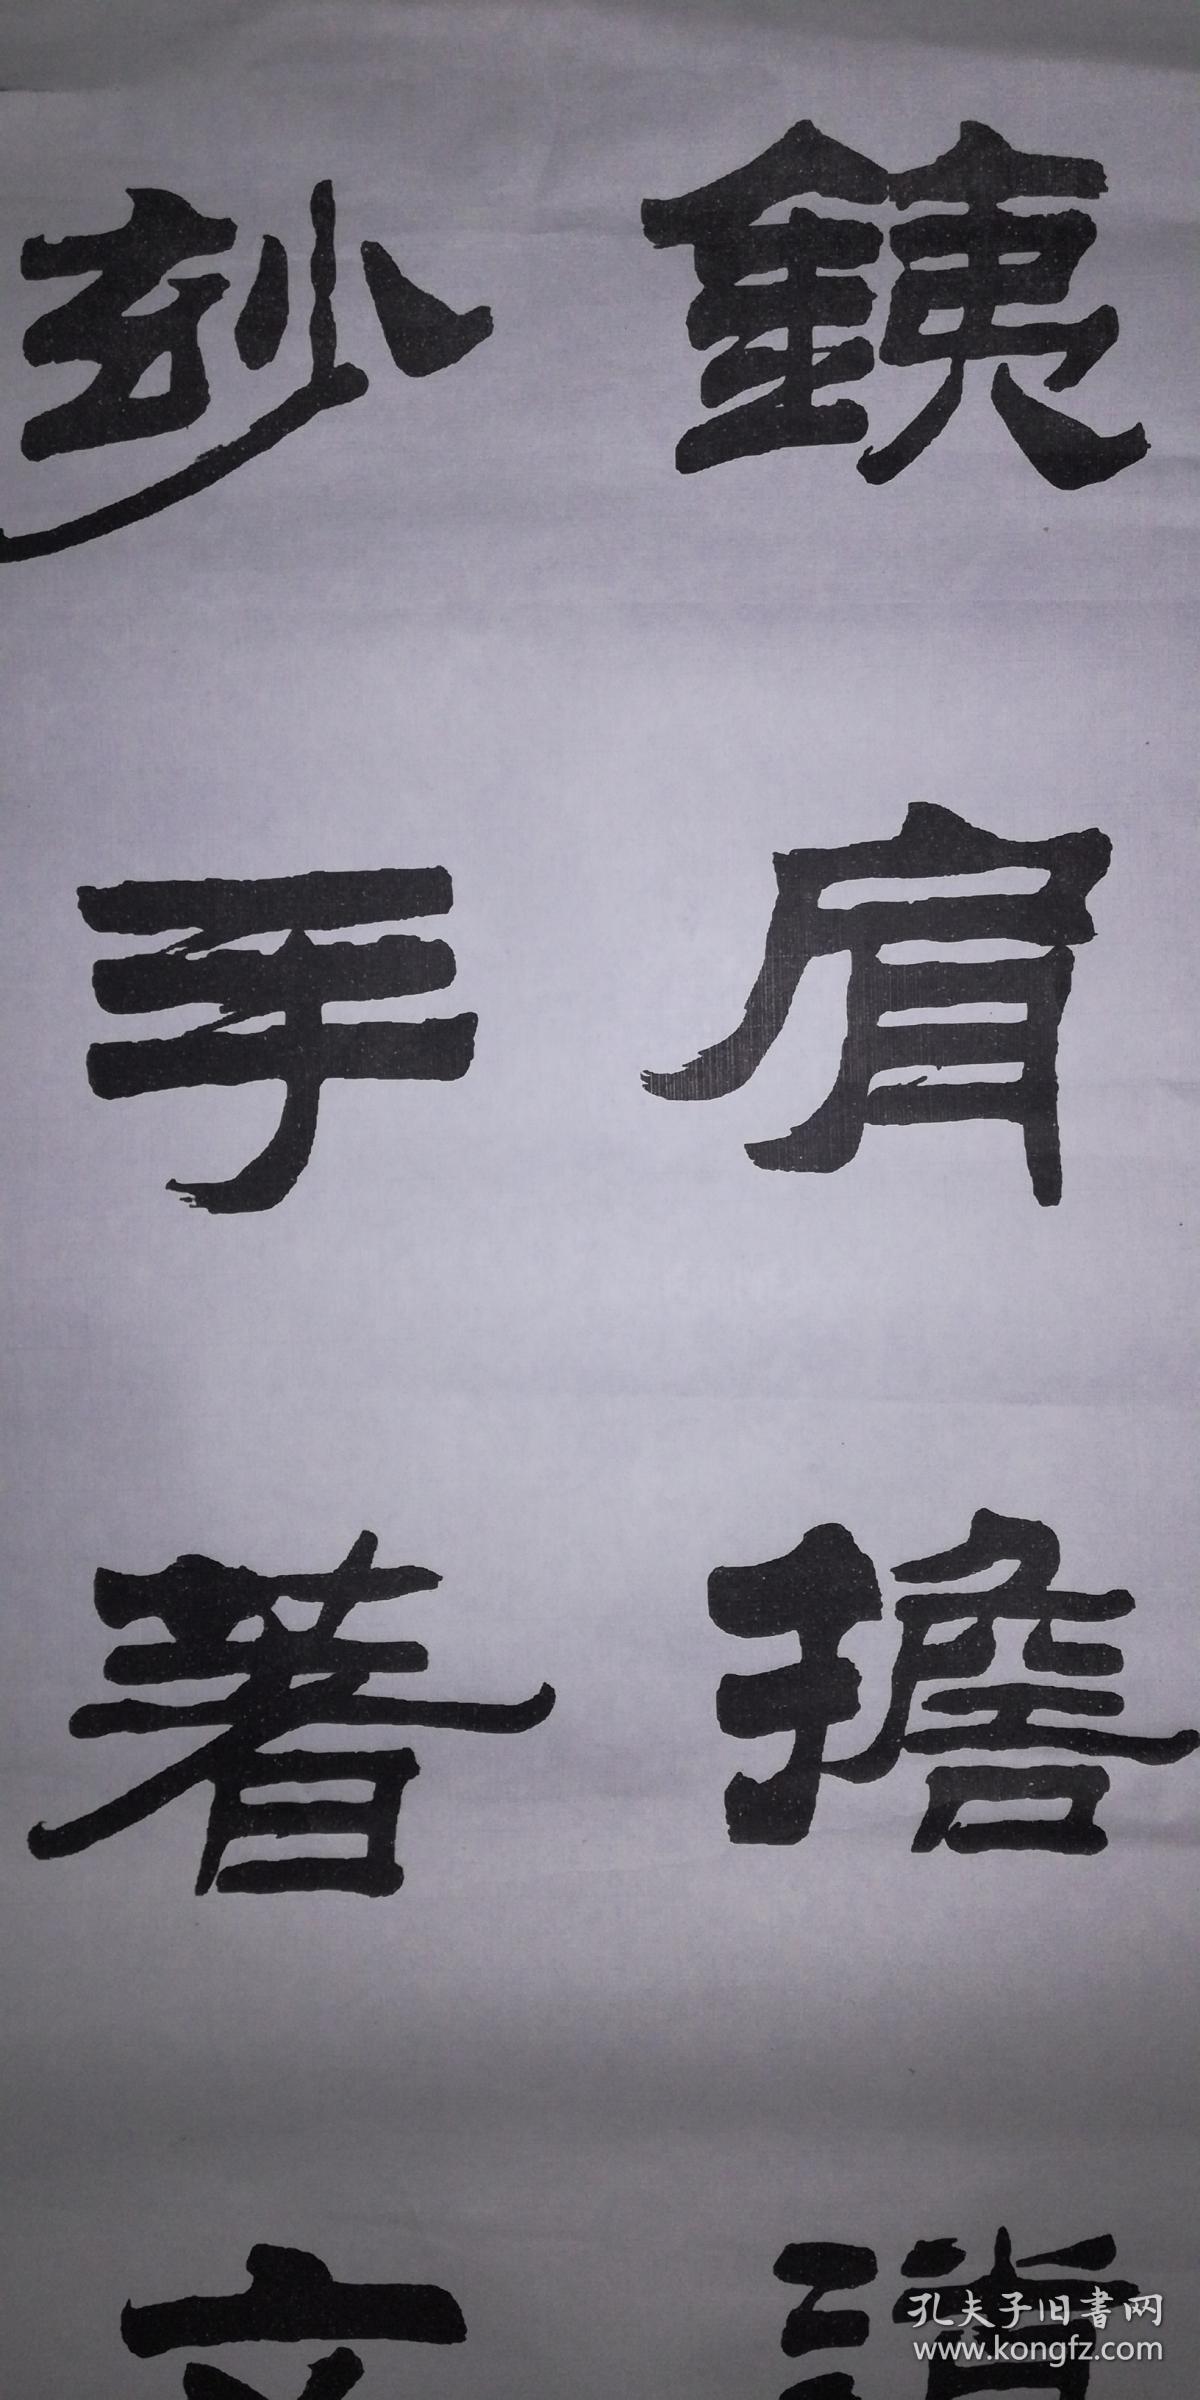 銕肩擔道
玅手著文
孔夫子旧書网
www.kongfz.com